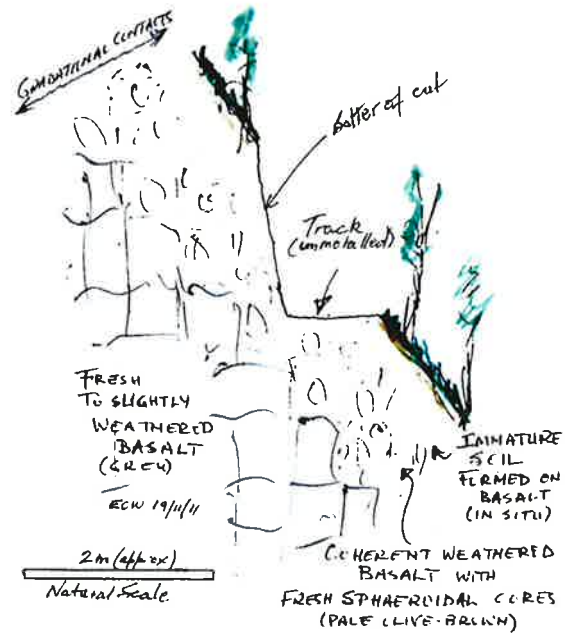 GRADATIONAL CONTACTS
batter of cut
Track
(unmetalled)
FRESH
TO SLIGHTLY
WEATHERED
BASALT
(GREY)
ECW 19/11/11
IMMATURE
SOIL
FORMED ON
BASALT
(IN SITU)
2m (approx)
Natural Scale
COHERENT WEATHERED
BASALT WITH
FRESH SPHAEROIDAL CORES
(PALE OLIVE-BROWN)